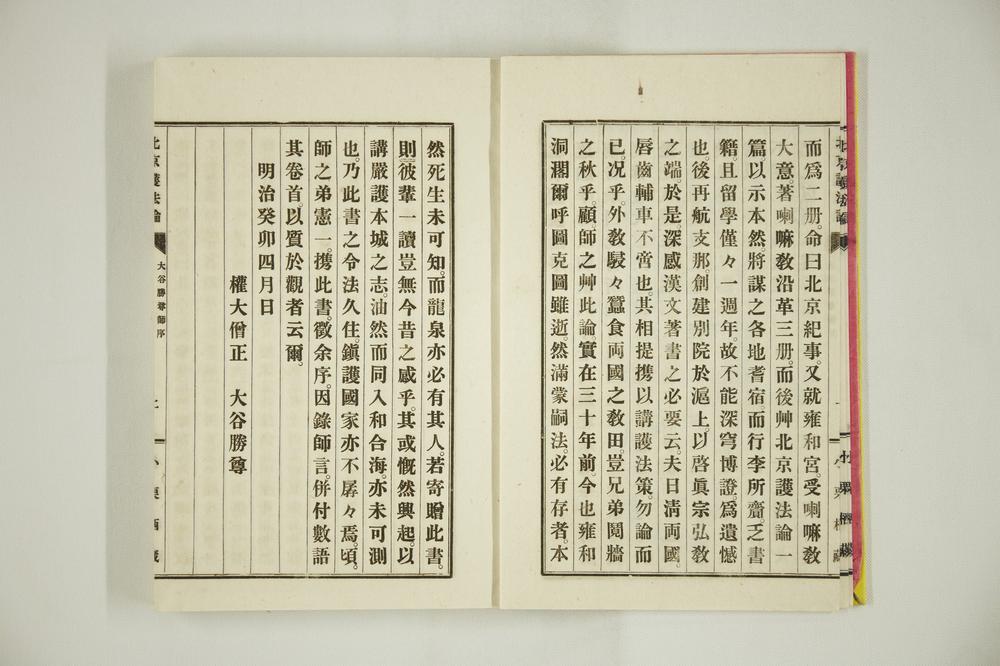 而爲二册。命曰北京紀事。又就雍和宮。受喇嘛敎
大意著喇嘛敎沿革三册。而後艸北京護法論一
篇以示本然將謀之各地耆宿而行李所齎。乏書
籍。且留學僅々一週年。故不能深穹博證。爲遺憾
也。後再航支那。創建別院於滬上。以啓眞宗弘敎
之端。於是。深感漢文著書之必要云。夫日淸両國。
唇齒輔車不啻也。其相提携以講護法策。勿論而
已。况乎。外敎駸々蠶食両國之敎田。豈兄弟鬩牆
之秋乎。顧。師之艸此論實在三十年前。今也雍和
洞濶爾呼圖克圖雖逝。然滿蒙嗣法。必有存者。本
然死生未可知。而龍泉亦必有其人。若寄贈此書。
則彼輩一讀豈無今昔之感乎。其或慨然興起。以
講嚴護本城之志。油然而同入和合海。亦未可測
也。乃此書之令法久住。鎭護國家亦不孱々焉。頃。
師之弟憲一。携此書。徵余序。因錄師言。併付數語
其卷首。以質於觀者云爾。
明治癸卯四月日
權大僧正　大谷勝尊
北京護法論
大谷勝尊師序